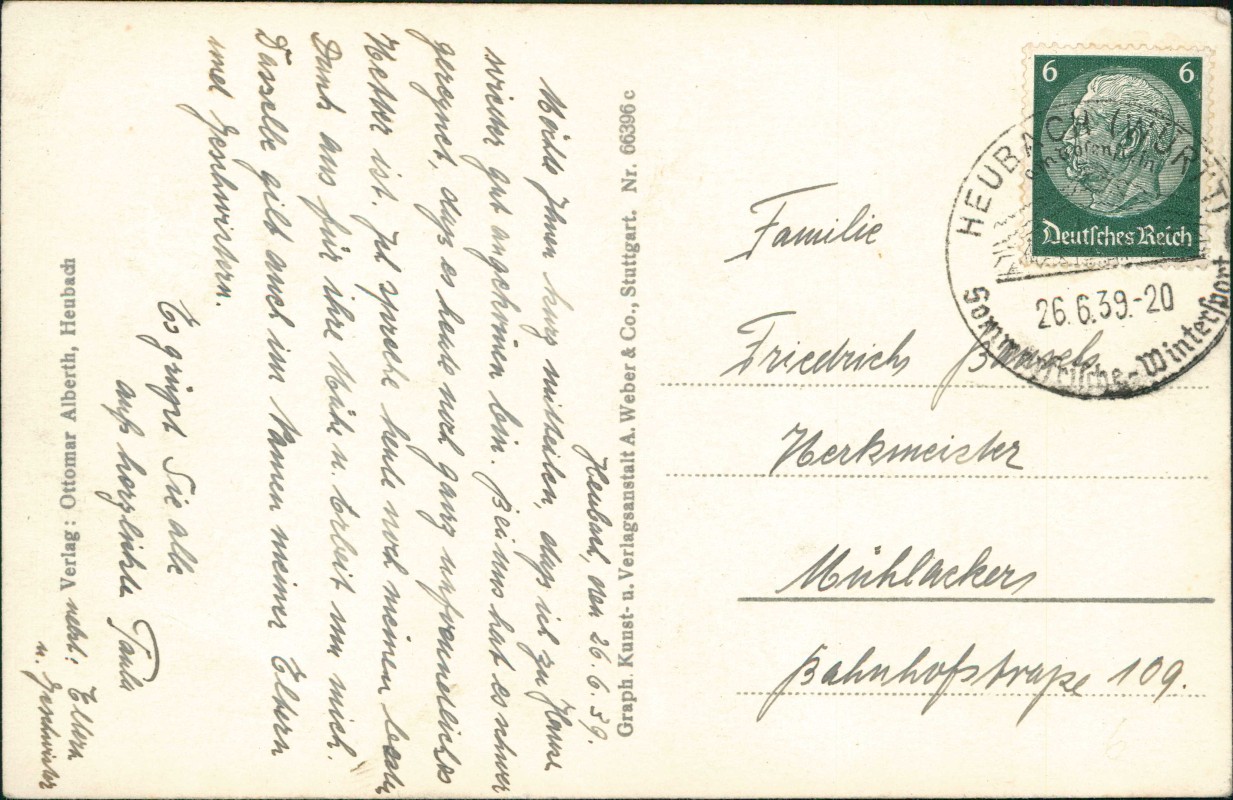 Heubach, den 26.6.39.
Möchte Ihnen kurz mitteilen, dass ich zu Hause
wieder gut angekommen bin. Bei uns hat es schwer
geregnet, dass es heute noch ganz unfreundliches
Wetter ist. Ich spreche heute noch meinen besten
Dank aus für ihre Mühe u. Arbeit um mich.
Dasselbe gilt auch im Namen meiner Eltern
und Geschwistern.
Es grüsst Sie alle
aufs herzlichste Paula
nebst: Eltern
u. Geschwister
Verlag: Ottomar Alberth, Heubach
Graph. Kunst- u. Verlagsanstalt A. Weber & Co., Stuttgart. Nr. 66396 c
6 6
Deutsches Reich
HEUBACH (WÜRTT)
26.6.39.-20
Sommerfrische-Wintersport
Familie
Friedrich
Werkmeister
Mühlacker
Bahnhofstraße 109.